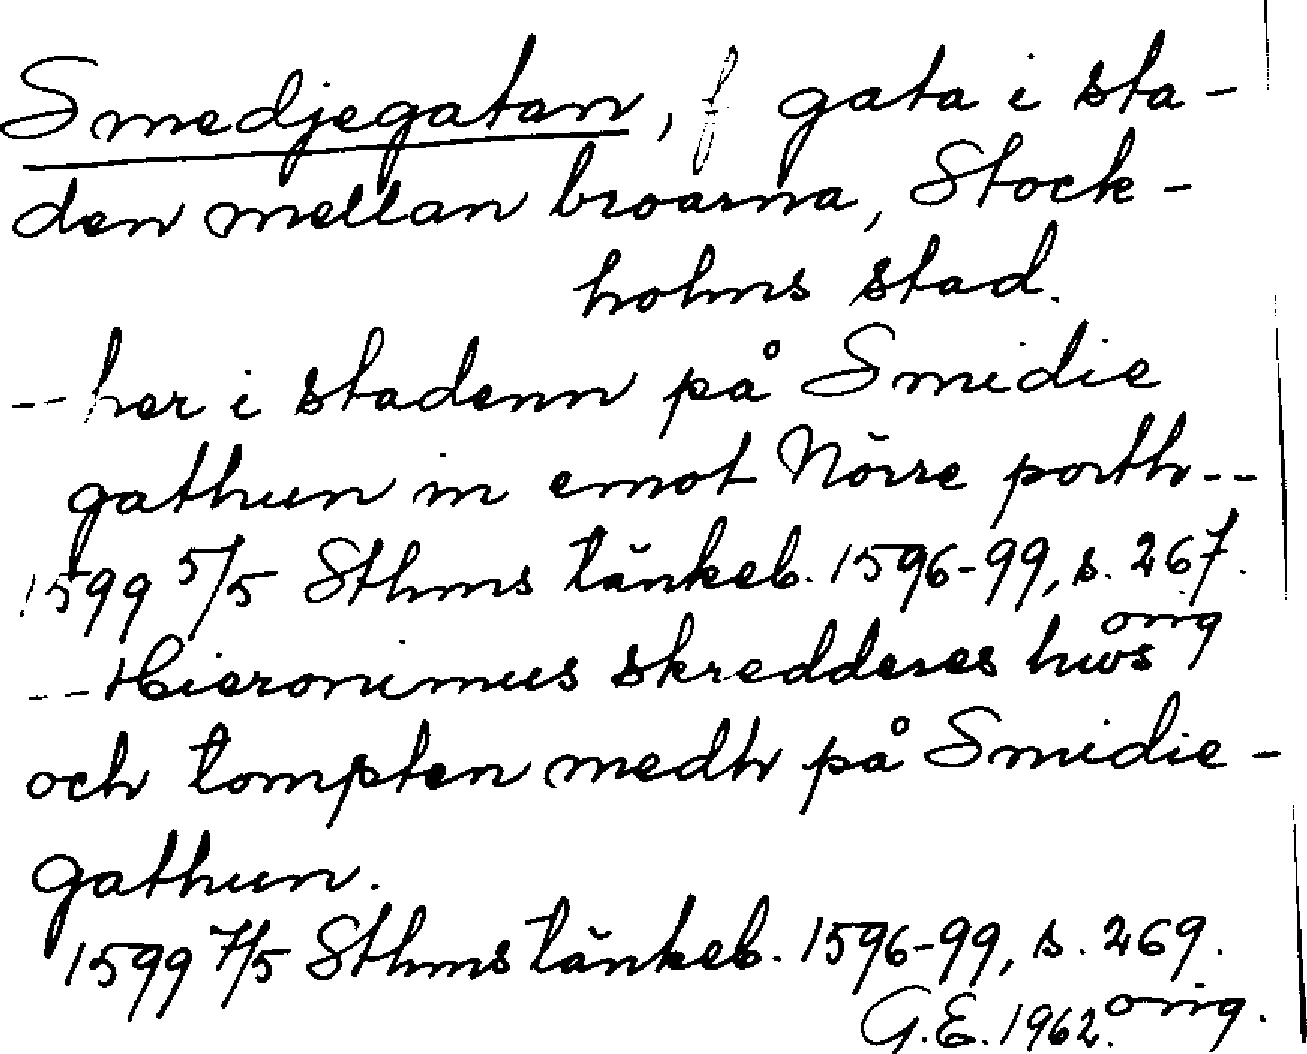 Smedjegatan, f gata i sta-
den mellan broarna, Stock-
holms stad.
-- her i stadenn på Smidie
gathun in emot Nörre porth --
1599 5/5 Sthms tänkeb. 1596-99, s. 267.
orig
-- Hieronimus skredderes hws
och tompten medh på Smidie-
gathun.
1599 7/5 Sthms tänkeb. 1596-99, s. 269.
G.E. 1962. orig.